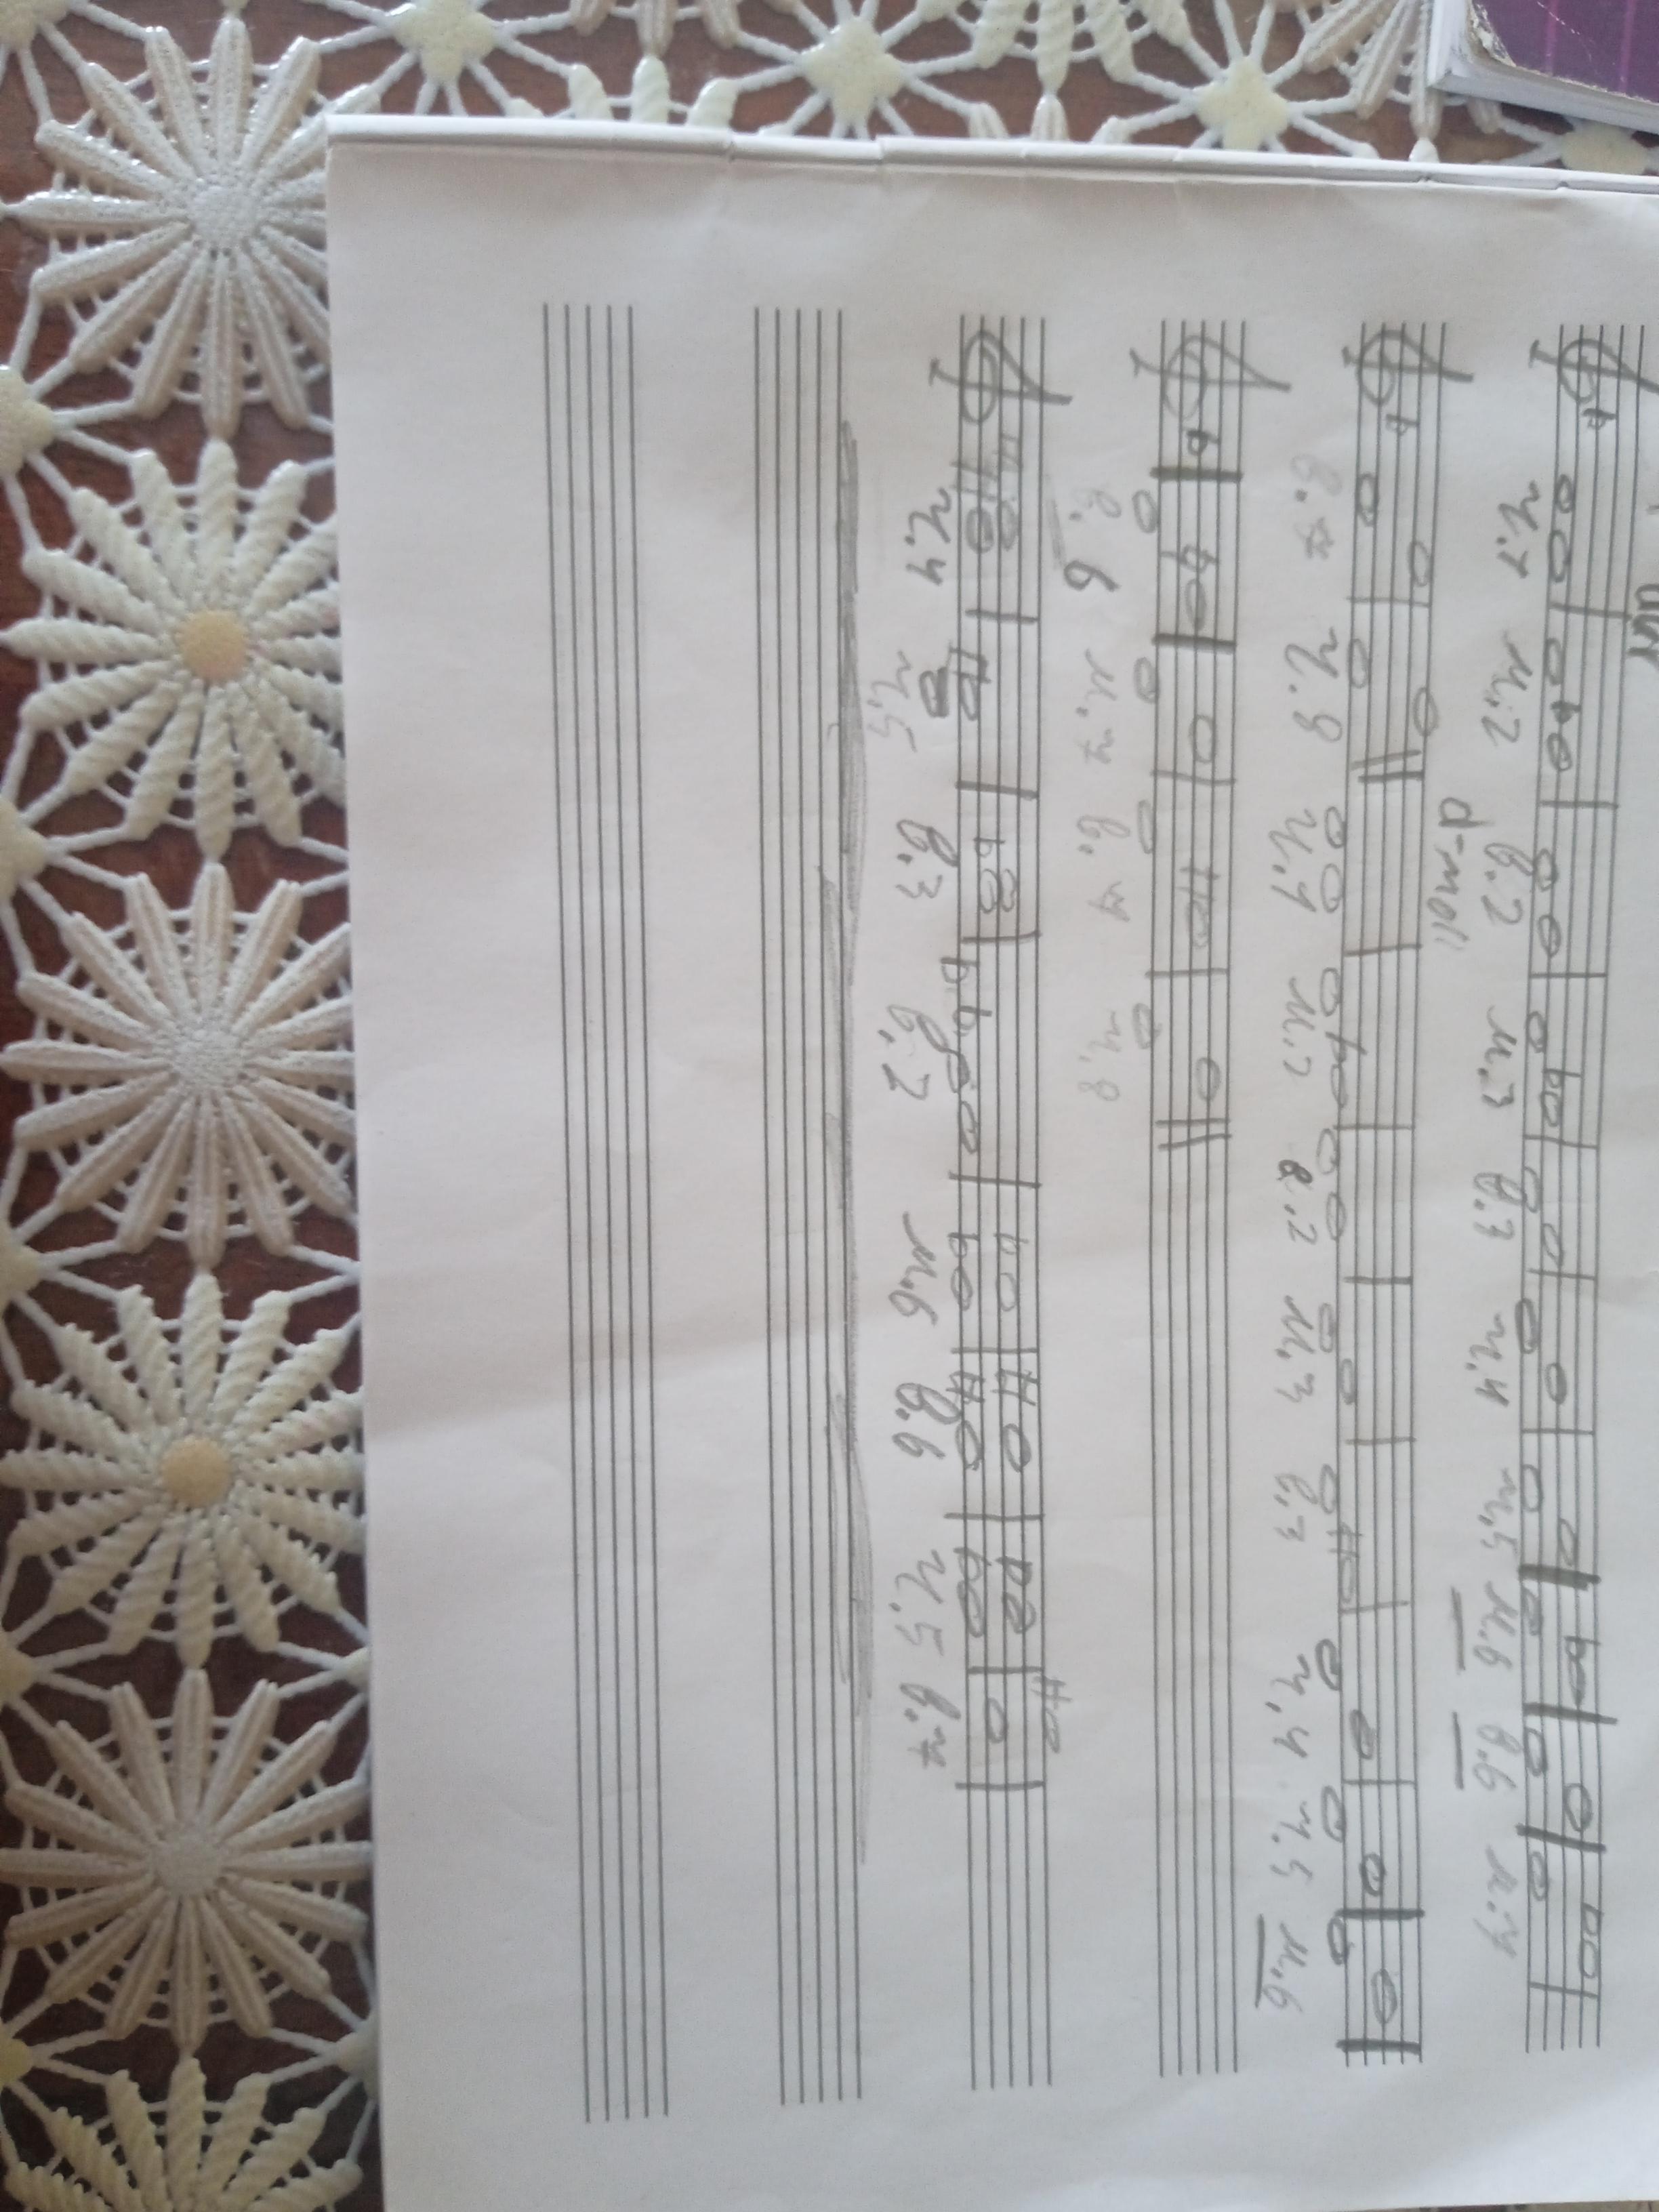 ч.1 м.2 в.2 м.3 в.3 ч.4 ч.5 м.6 в.6 м.7
d-moll
в.7 ч.8 ч.1 м.2 в.2 м.3 в.3 ч.4 ч.5 м.6
в.6 м.7 в.7 ч.8
ч.4 ч.5 в.3 в.2 м.6 в.6 ч.5 в.7